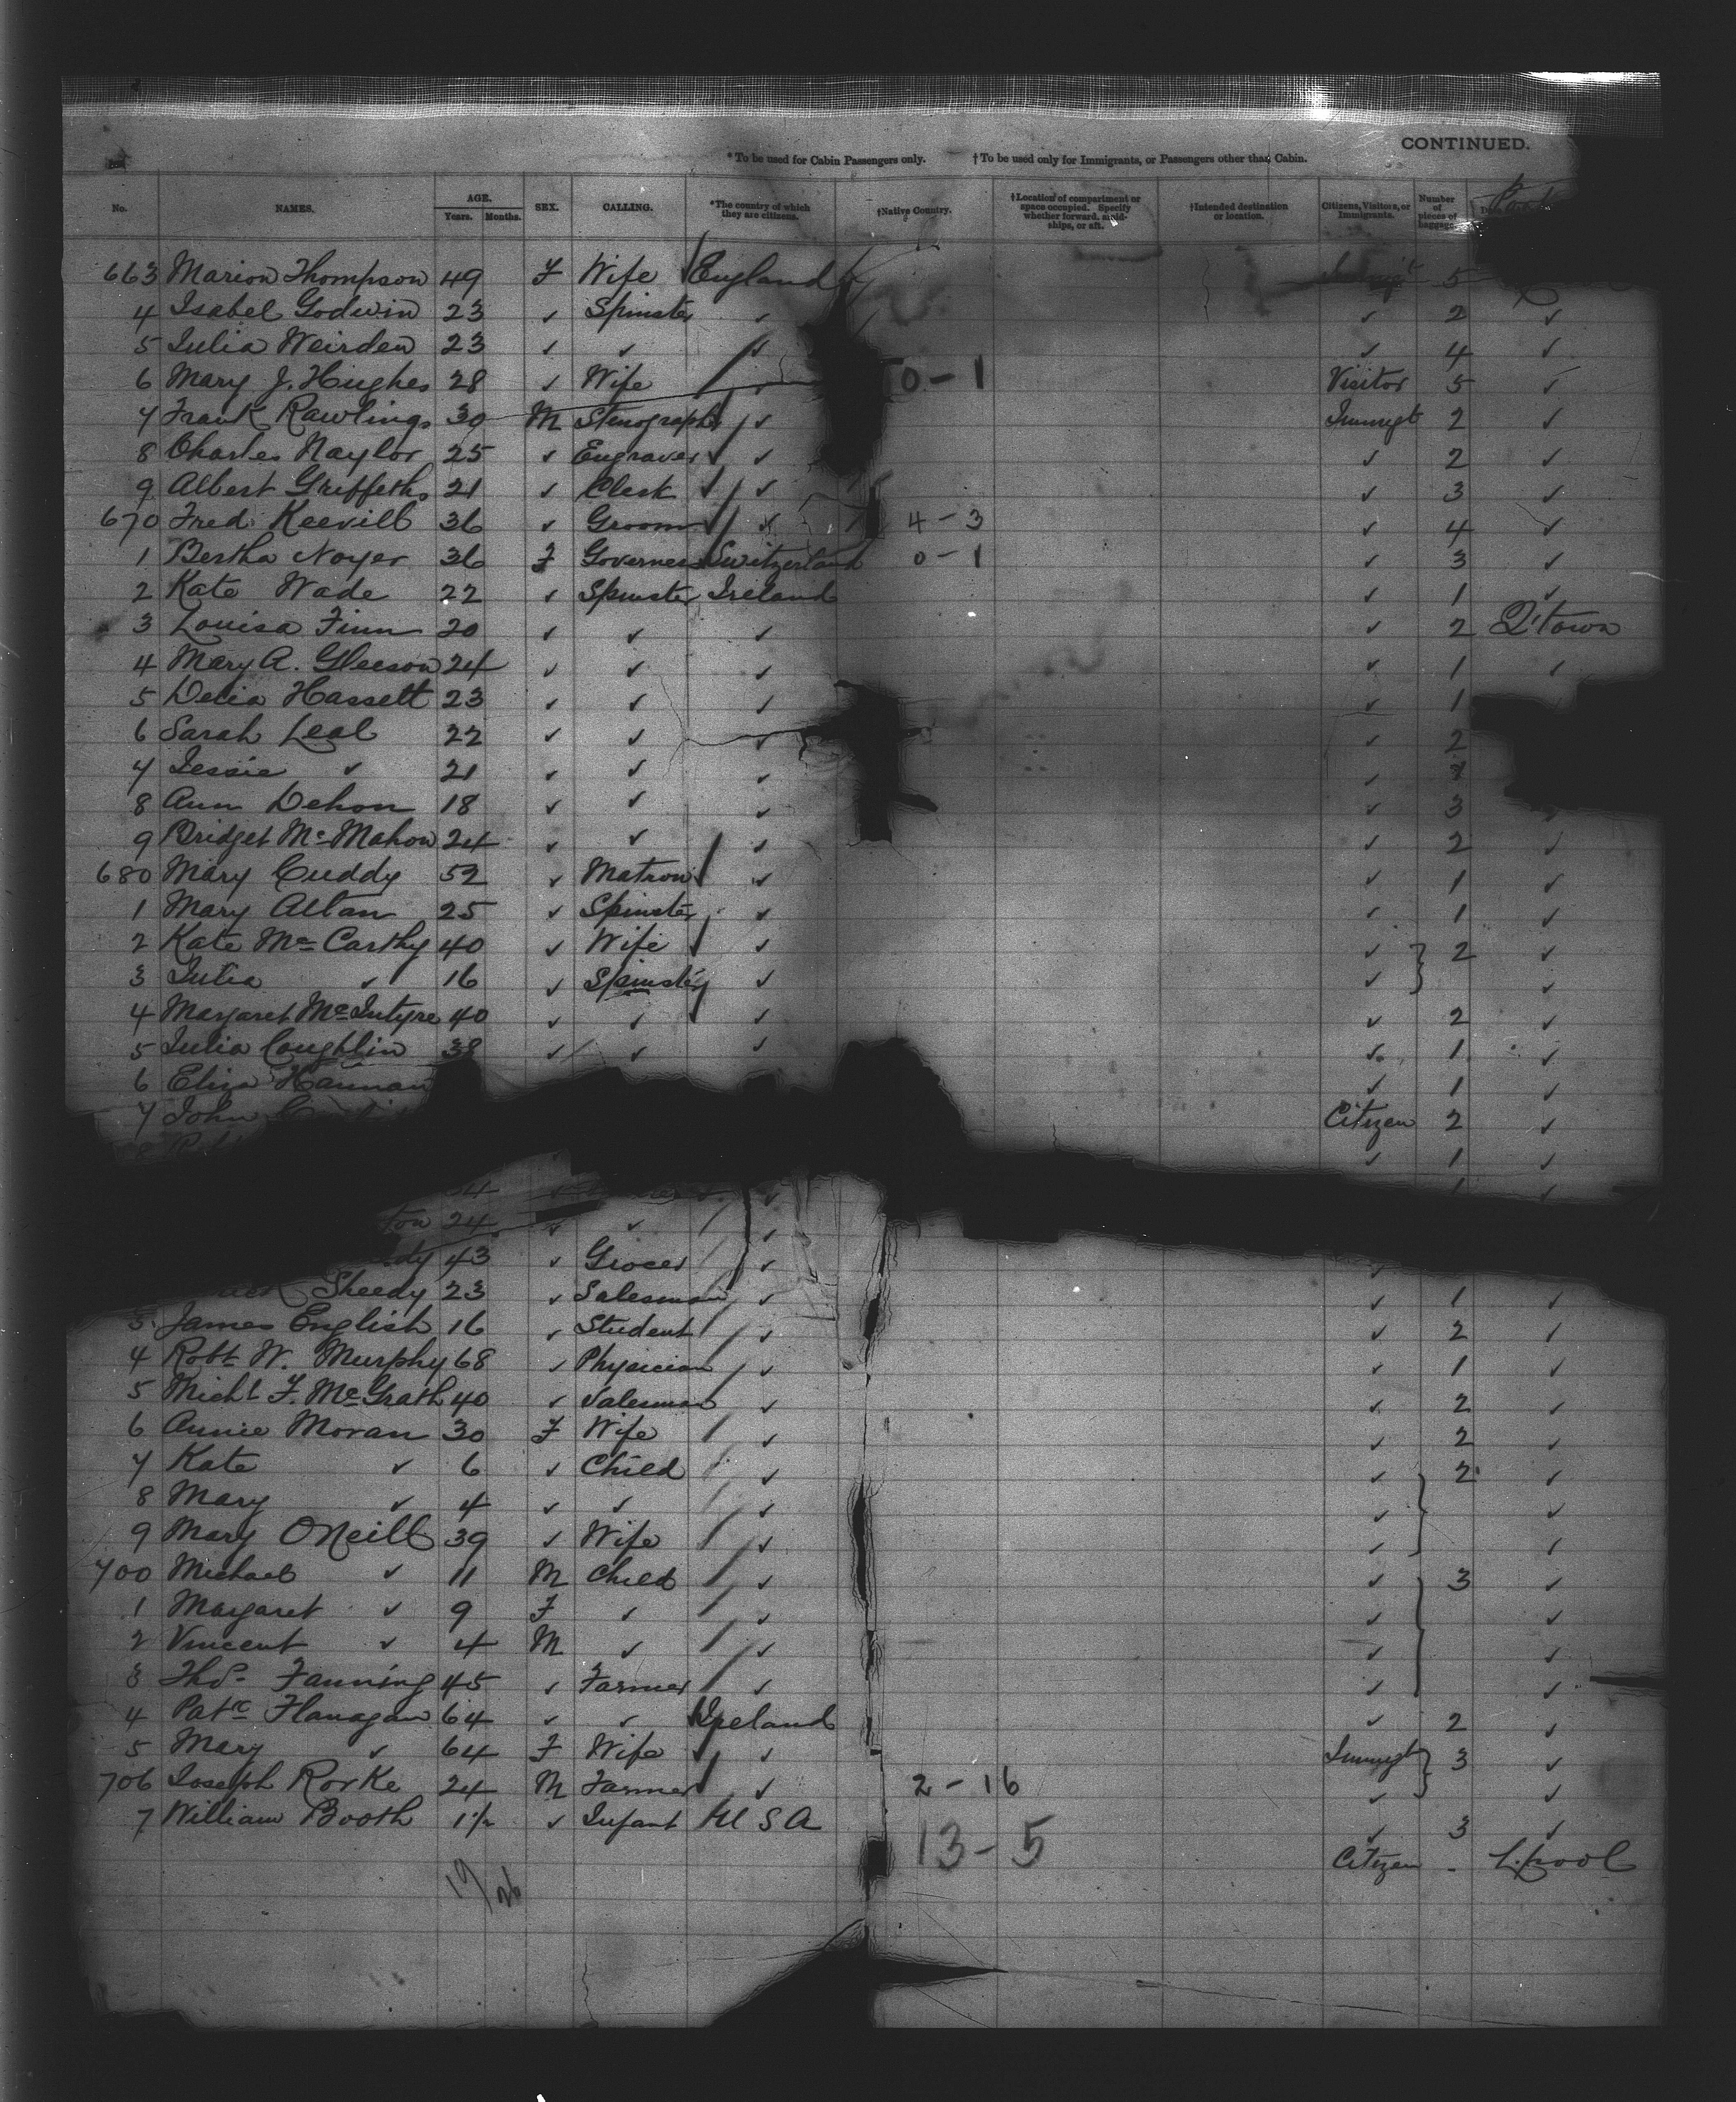 CONTINUED.
* To be used for Cabin Passengers only. † To be used only for Immigrants, or Passengers other than Cabin.
No. NAMES. AGE. Years. Months. SEX. CALLING. *The country of which they are citizens. †Native Country. †Location of compartment or space occupied. Specify whether forward, amidships, or aft. †Intended destination or location. Citizens, Visitors, or Immigrants. Number of pieces of baggage.
663 Marion Thompson 49 F Wife England 5
4 Isabel Godwin 23 ✓ Spinster ✓ ✓ 2 ✓
5 Julia Weirden 23 ✓ ✓ ✓ ✓ 4 ✓
6 Mary J. Hughes 28 ✓ Wife ✓ 0 - 1 Visitor 5 ✓
7 Frank Rawlings 30 M Stenograph ✓ Immigt 2 ✓
8 Charles Naylor 25 ✓ Engraver ✓ ✓ 2 ✓
9 Albert Griffeths 21 ✓ Clerk ✓ ✓ 3 ✓
670 Fred Keevill 36 ✓ Groom ✓ 4 - 3 ✓ 4 ✓
1 Bertha Noyer 36 F Governess Switzerland 0 - 1 ✓ 3 ✓
2 Kate Wade 22 ✓ Spinster Ireland ✓ 1 ✓
3 Louisa Finn 20 ✓ ✓ ✓ ✓ 2 Q'town
4 Mary A. Gleeson 24 ✓ ✓ ✓ ✓ 1 ✓
5 Delia Hassett 23 ✓ ✓ ✓ ✓ 1
6 Sarah Leal 22 ✓ ✓ ✓ ✓ 2
7 Jessie ✓ 21 ✓ ✓ ✓ ✓
8 Ann Dehon 18 ✓ ✓ ✓ ✓ 3
9 Bridget McMahon 24 ✓ ✓ ✓ ✓ 2 ✓
680 Mary Cuddy 52 ✓ Matron ✓ ✓ 1 ✓
1 Mary Allan 25 ✓ Spinster ✓ ✓ 1 ✓
2 Kate McCarthy 40 ✓ Wife ✓ ✓ 2 ✓
3 Julia ✓ 16 ✓ Spinster ✓ ✓ ✓
4 Margaret McIntyre 40 ✓ ✓ ✓ ✓ 2 ✓
5 Julia Coughlin 38 ✓ ✓ ✓ ✓ 1 ✓
6 Eliza Hannan ✓ 1 ✓
7 John Citizen 2 ✓
8 ✓ 1 ✓
34 ✓
ton 24 ✓ ✓ ✓
dy 43 ✓ Grocer ✓ ✓
Sheedy 23 ✓ Salesman ✓ ✓ 1 ✓
3 James English 16 ✓ Student ✓ ✓ 2 ✓
4 Robt W. Murphy 68 ✓ Physician ✓ ✓ 1 ✓
5 Michl F. McGrath 40 ✓ Salesman ✓ ✓ 2 ✓
6 Annie Moran 30 F Wife ✓ ✓ 2 ✓
7 Kate ✓ 6 ✓ Child ✓ ✓ 2 ✓
8 Mary ✓ 4 ✓ ✓ ✓ ✓ ✓
9 Mary ONeill 39 ✓ Wife ✓ ✓ ✓
700 Michael ✓ 11 M Child ✓ ✓ 3 ✓
1 Margaret ✓ 9 F ✓ ✓ ✓ ✓
2 Vincent ✓ 4 M ✓ ✓ ✓ ✓
3 Thos. Fanning 45 ✓ Farmer ✓ ✓ ✓
4 Patrc Flanagan 64 ✓ ✓ Ireland ✓ 2 ✓
5 Mary ✓ 64 F Wife ✓ Immigt 3 ✓
706 Joseph Rorke 24 M Farmer ✓ 2 - 16 ✓ ✓
7 William Booth 1½ ✓ Infant U S A ✓ 3 ✓
13 - 5
Citizen - L.pool
19/26